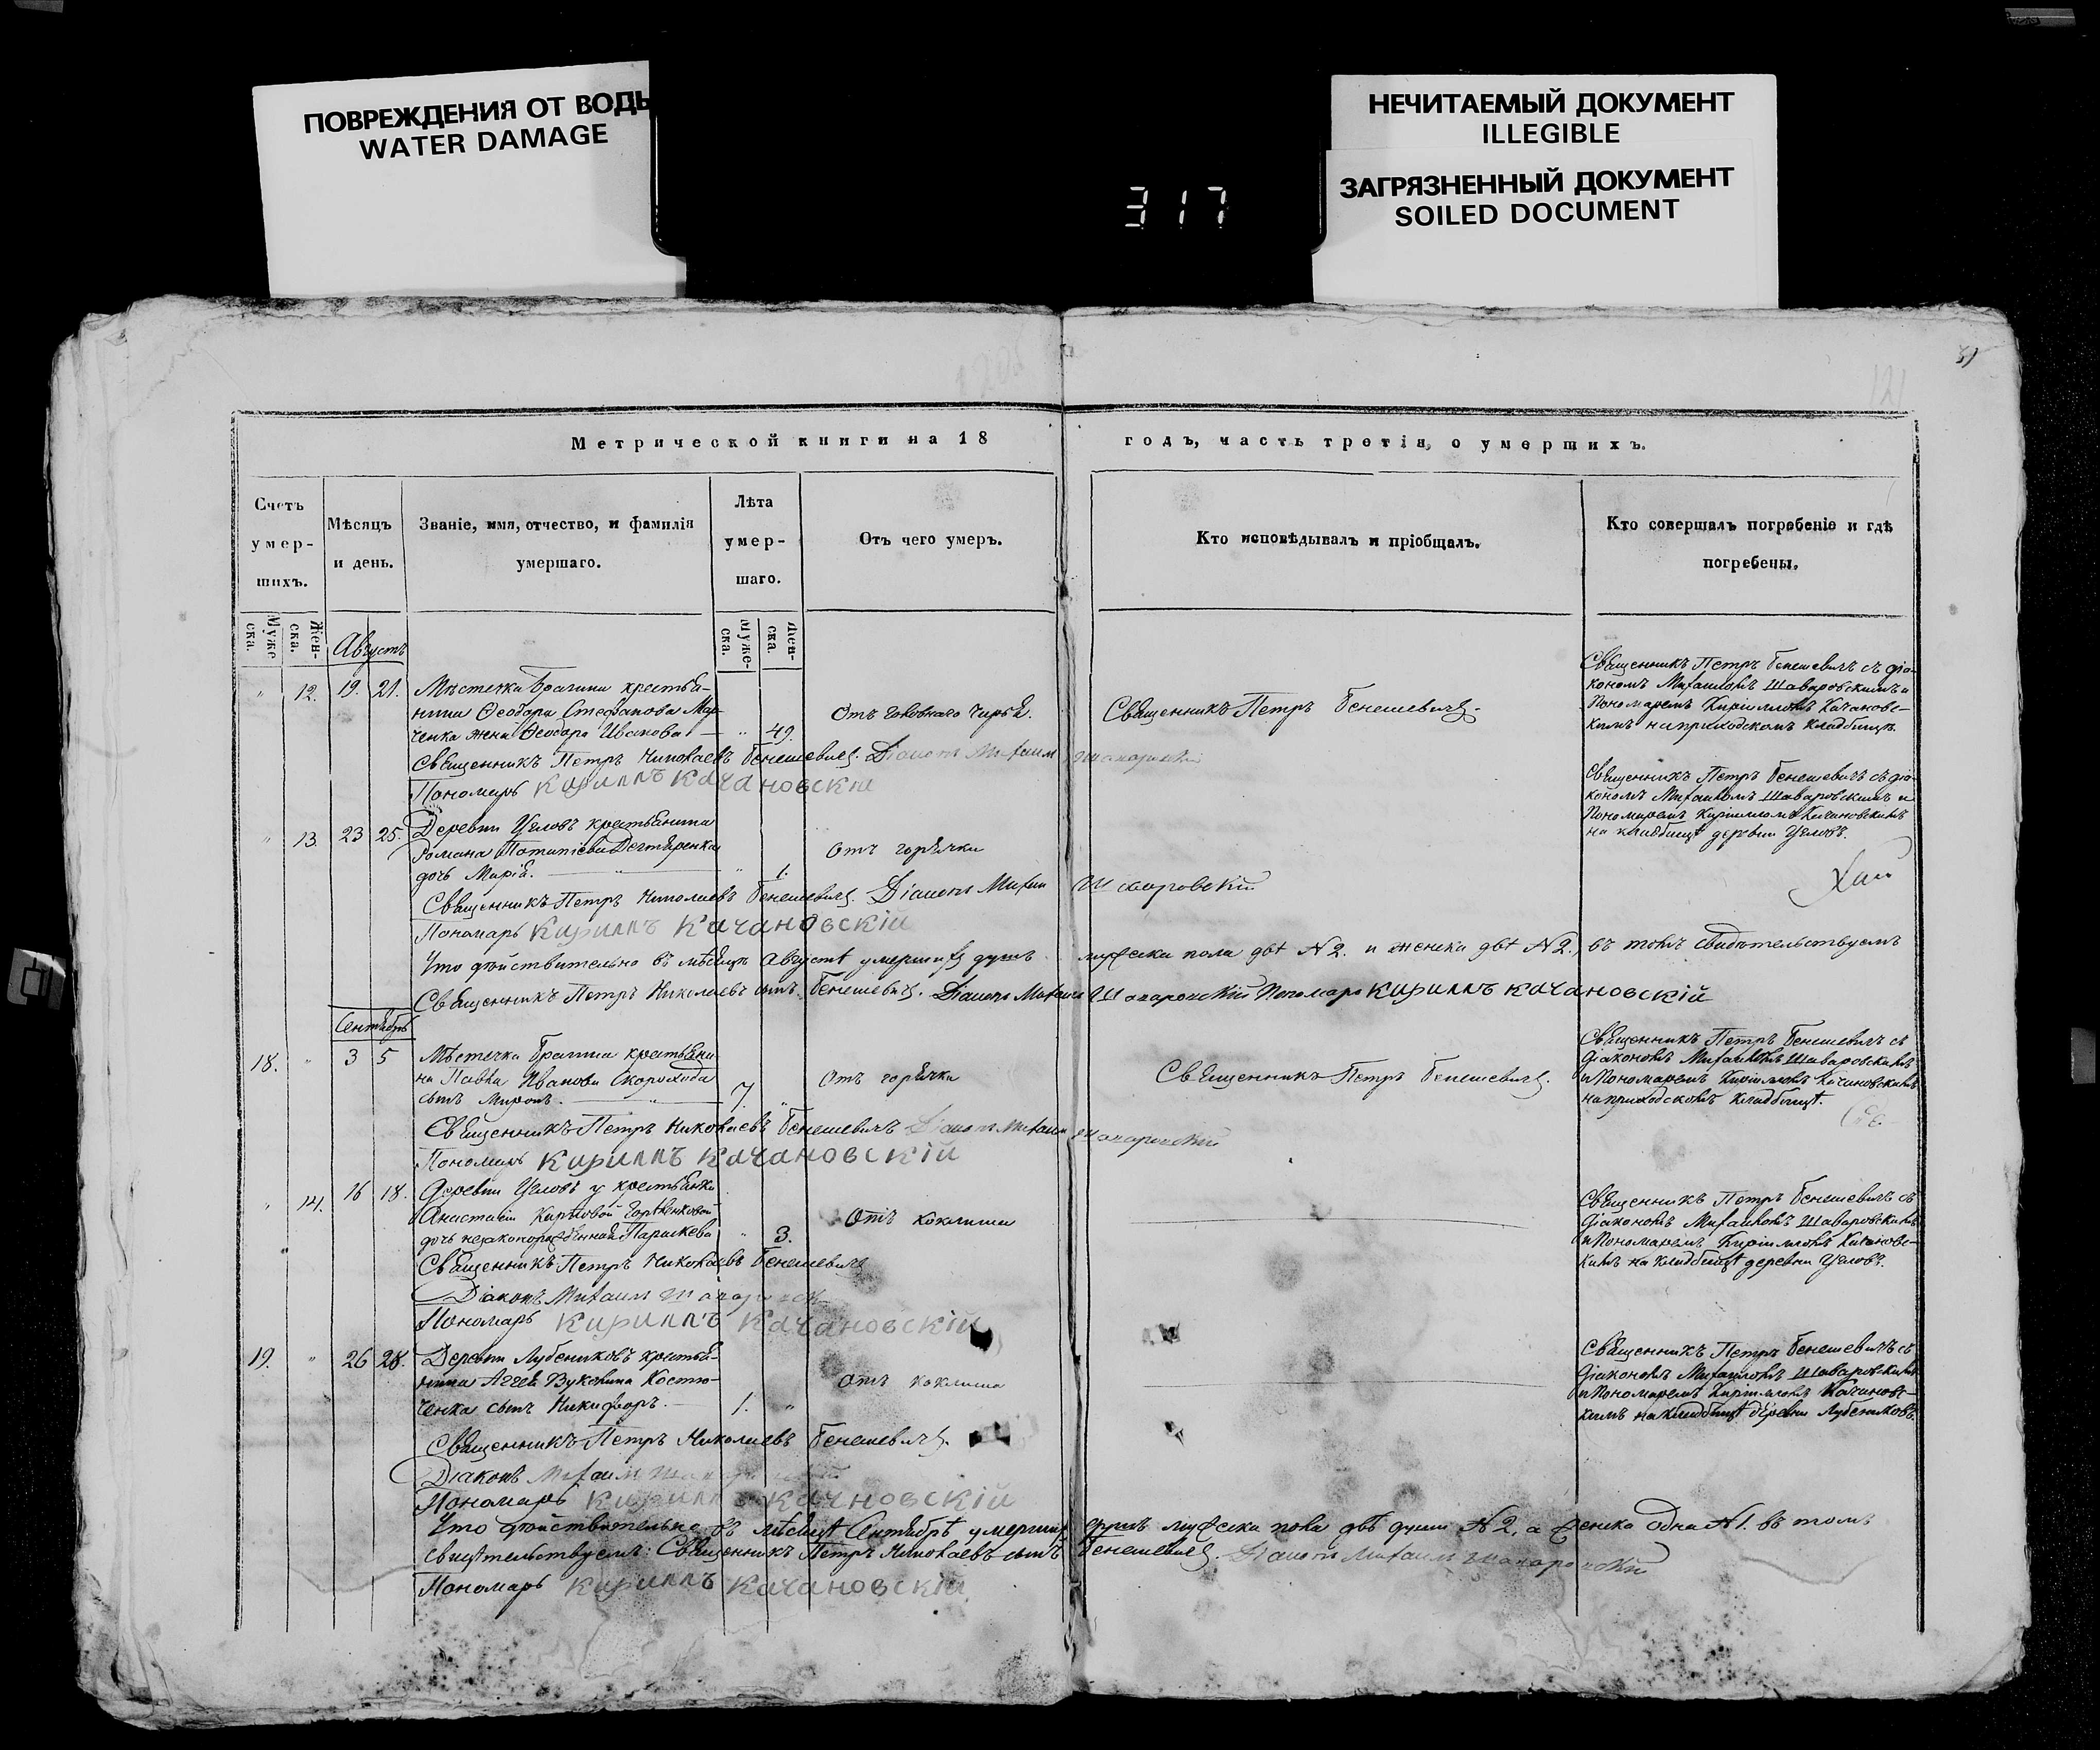 ПОВРЕЖДЕНИЯ ОТ ВОДЫ
WATER DAMAGE
НЕЧИТАЕМЫЙ ДОКУМЕНТ
ILLEGIBLE
ЗАГРЯЗНЕННЫЙ ДОКУМЕНТ
SOILED DOCUMENT
317
121
Метрической книги на 18 годъ, часть третія, о умершихъ.
Счетъ умер-шихъ.
Мѣсяцъ и день.
Званіе, имя, отчество, и фамилія умершаго.
Лѣта умер-шаго.
Отъ чего умеръ.
Кто исповѣдывалъ и пріобщалъ.
Кто совершалъ погребеніе и гдѣ погребены.
Муже-ска.
Жен-ска.
Муже-ска.
Жен-ска.
Августъ
" 12. 19. 21. Мѣстечка Брагина крестья-
нина Ѳеодора Стефанова Мар-
ченка жена Ѳеодора Иванова " 49.
Отъ головнаго чирья.
Священникъ Петръ Бенешевичъ.
Священникъ Петръ Бенешевичъ съ діа-
кономъ Михаиломъ Шаваровскимъ и
Пономаремъ Кирилломъ Качановс-
кимъ на приходскомъ кладбищѣ.
Священникъ Петръ Николаевъ Бенешевичъ. Діаконъ Михаилъ
Пономарь Кириллъ Качановскій
" 13. 23 25. Деревни Угловъ крестьянина
Романа Потапіева Дегтяренка
дочь Марія. " 1.
Отъ горячки
Священникъ Петръ Бенешевичъ съ діа-
кономъ Михаиломъ Шаваровскимъ и
Пономаремъ Кирилломъ Качановскимъ
на кладбищѣ деревни Угловъ.
Священникъ Петръ Николаевъ Бенешевичъ. Діаконъ Михаилъ Шаваровскій
Пономарь Кириллъ Качановскій
Что дѣйствительно въ мѣсяцѣ Августѣ умершихъ душъ мужеска пола двѣ №2. и женска двѣ №2., въ томъ свидѣтельствуемъ
Священникъ Петръ Николаевъ сынъ Бенешевичъ. Діаконъ Михаилъ Шаваровскій Пономарь Кириллъ Качановскій
Сентябрь
18. " 3 5 Мѣстечка Брагина крестьяни-
на Павла Иванова Скорохода
сынъ Миронъ. 7. "
Отъ горячки
Священникъ Петръ Бенешевичъ.
Священникъ Петръ Бенешевичъ съ
діакономъ Михаиломъ Шаваровскимъ
и Пономаремъ Кирилломъ Качановскимъ
на приходскомъ кладбищѣ.
Священникъ Петръ Николаевъ Бенешевичъ Діаконъ Михаилъ Шаваровскій
Пономарь Кириллъ Качановскій
" 14. 16 18. Деревни Угловъ у крестьянки
Анастасіи Карповой
дочь незаконорожденная Параскева " 3.
Отъ коклюша
Священникъ Петръ Бенешевичъ съ
діакономъ Михаиломъ Шаваровскимъ
и Пономаремъ Кирилломъ Качановс-
кимъ на кладбищѣ деревни Угловъ.
Священникъ Петръ Николаевъ Бенешевичъ
Діаконъ Михаилъ
Пономарь Кириллъ Качановскій
19. " 26 28. Деревни Лубениковъ крестья-
нина Агеея Костю-
ченка сынъ Никифоръ. 1. "
Отъ коклюша
Священникъ Петръ Бенешевичъ съ
діакономъ Михаиломъ Шаваровскимъ
и Пономаремъ Кирилломъ Качановс-
кимъ на кладбищѣ деревни Лубениковъ.
Священникъ Петръ Николаевъ Бенешевичъ.
Діаконъ Михаилъ
Пономарь Кириллъ Качновскій
Что дѣйствительно въ мѣсяцѣ Сентябрѣ умершихъ душъ мужеска пола двѣ души №2, а женска одна №1. въ томъ
свидѣтельствуемъ: Священникъ Петръ Николаевъ сынъ Бенешевичъ. Діаконъ Михаилъ Шаваровскій
Пономарь Кириллъ Качановскій